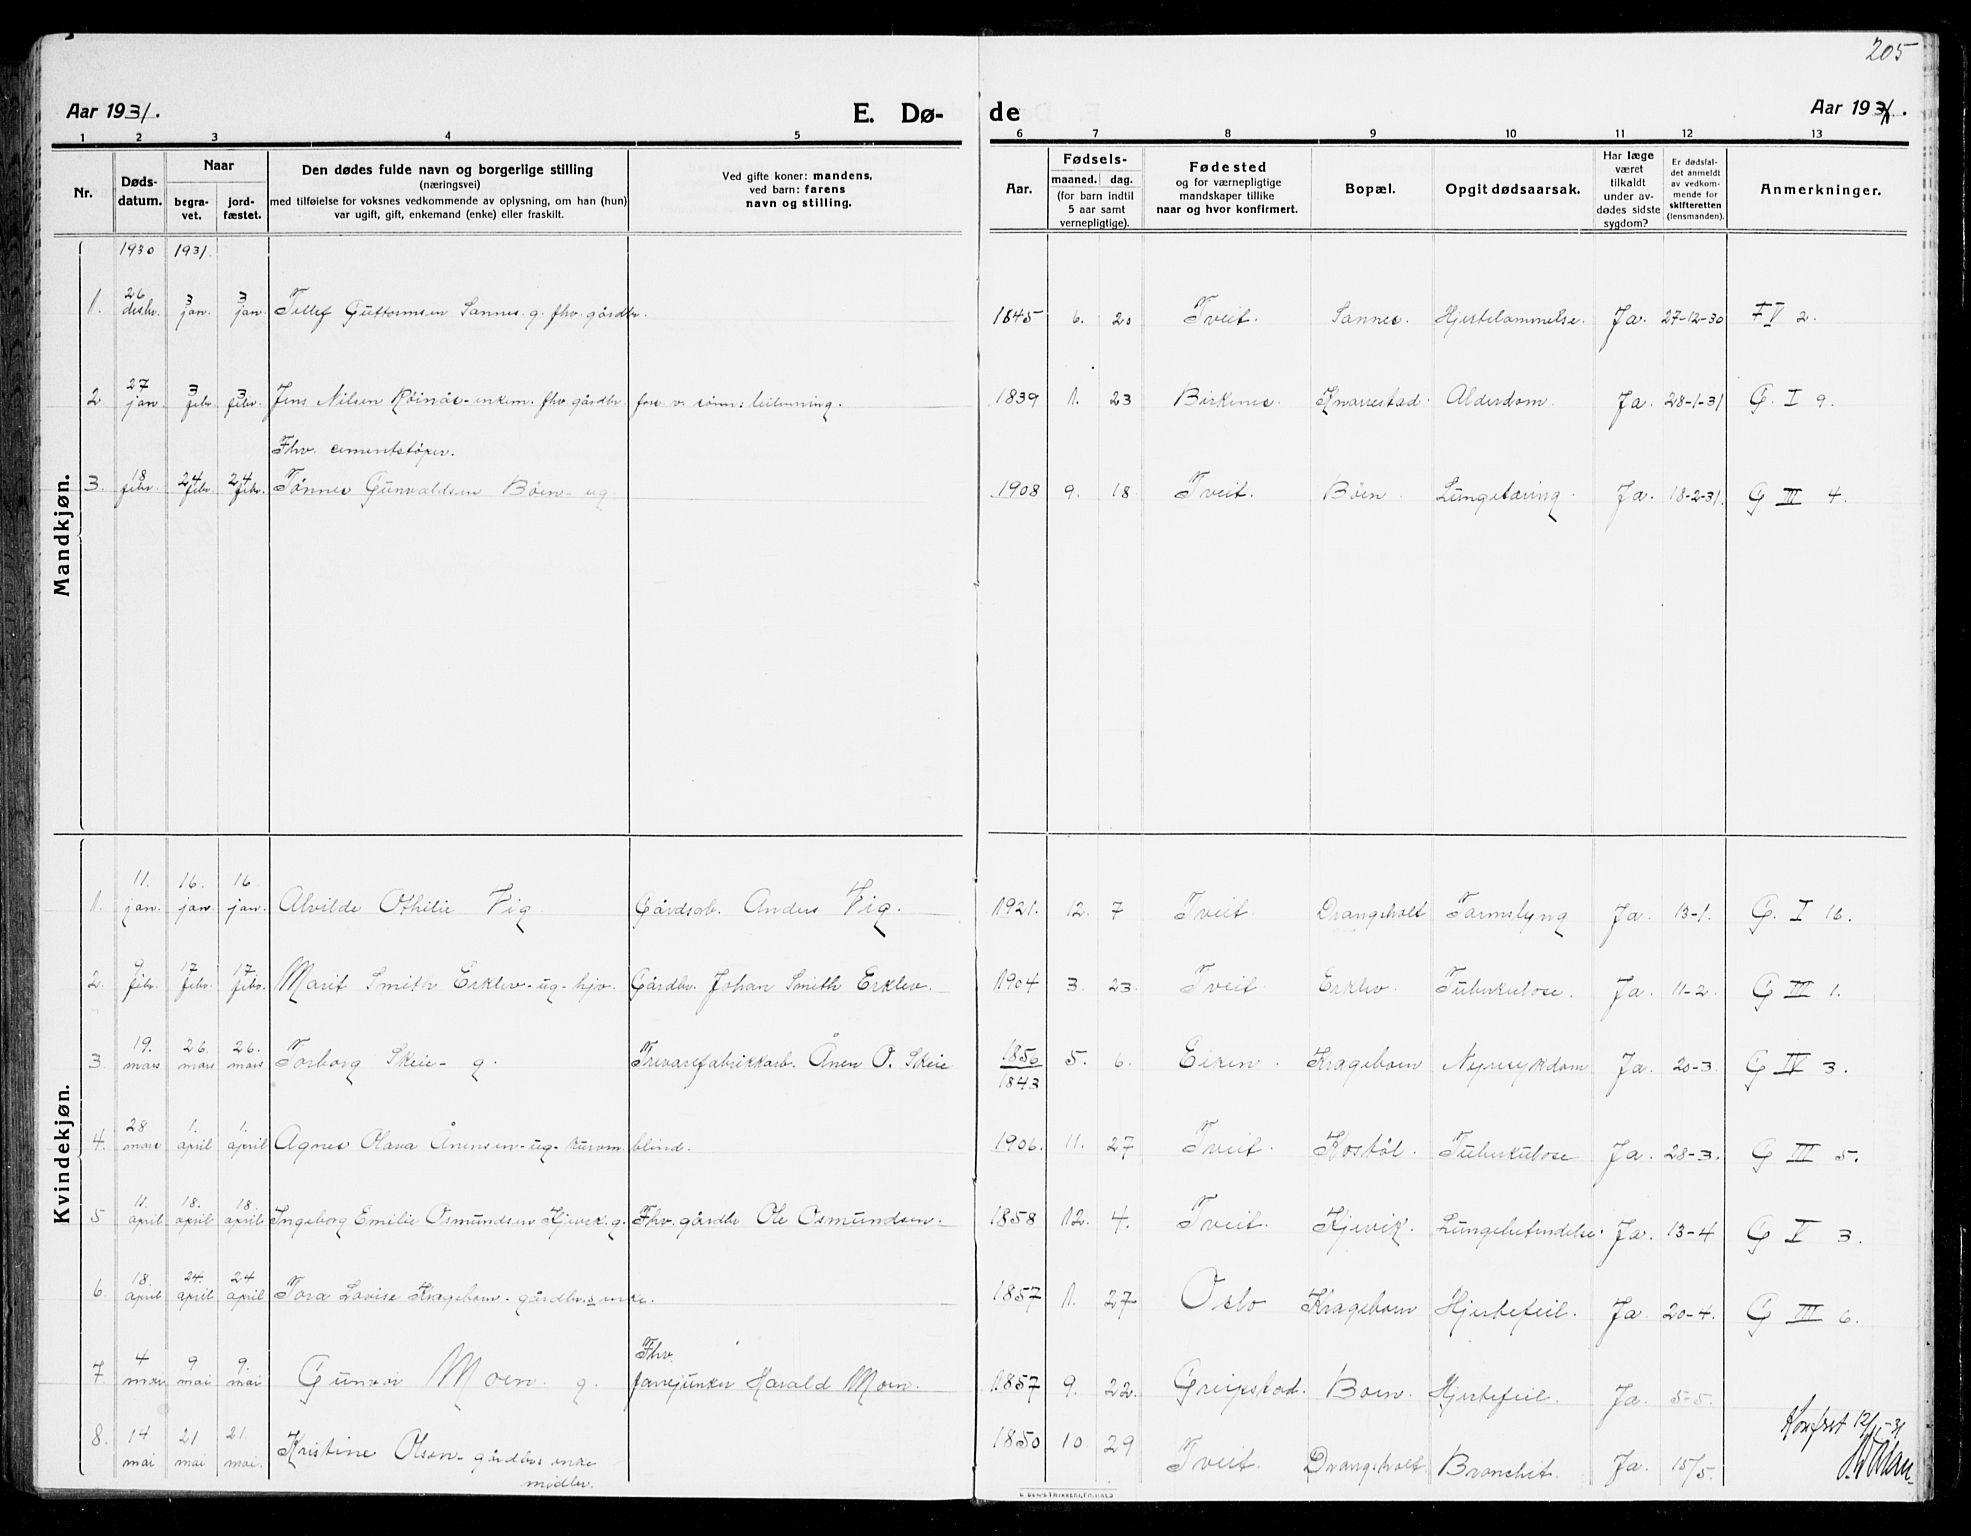 205
Aar 1931. E. Dø- de Aar 1931.
1 2 3 4 5 6 7 8 9 10 11 12 13
Nr. Døds-datum. Naar begra-vet. jord-fæstet. Den dødes fulde navn og borgerlige stilling (næringsvei) med tilføielse for voksnes vedkommende av oplysning, om han (hun) var ugift, gift, enkemand (enke) eller fraskilt. Ved gifte koner: mandens, ved barn: farens navn og stilling. Aar. Fødsels- maaned. dag. (for barn indtil 5 aar samt vernepligtige). Fødested og for værnepligtige mandskaper tillike naar og hvor konfirmert. Bopæl. Opgit dødsaarsak. Har læge været tilkaldt under av-dødes sidste sygdom? Er dødsfal-det anmeldt av vedkom-mende for skifteretten (lensmanden). Anmerkninger.
Mandkjøn.
1930 1931.
1. 26 desbr. 3 jan. 3 jan. Tellef Guttormsen Sannes. g. fhv. gårdbr. 1845 6. 20 Tveit. Sannes. Hjertelammelse. Ja. 27-12-30 F V 2.
2 27 jan 3 febr. 3 febr. Jens Nilsen Røinås-enkem. fhv. gårdbr. fors. v. sønn: 1839 1. 23 Birkenes. Knarrestad. Alderdom. Ja. 28-1-31 G. I 9.
Fhv. cementstøper.
3. 18 febr. 24 febr. 24 febr. Tønnes Gunvaldsen Böen- ug 1908 9. 18 Tveit. Böen. Lungetæring. Ja. 18-2-31. G III 4.
Kvindekjøn.
1. 11. jan. 16. jan. 16 jan. Alvilde Othilie Vig Gårdsarb. Anders Vig. 1921. 12. 7 Tveit. Drangsholt Tarmslyng Ja. 13-1. G. I 16.
2. 9 febr. 17 febr. 17. febr. Marit Smith Erklev-ug-hjv. Gårdbr. Johan Smith Erklev. 1904 3. 23. Tveit. Erklev Tuberkulose. Ja. 11-2. G III 1.
3. 19. mars 26. mars 26. mars Torborg Skeie- g. Trevarefabrikkarb. Ånen O. Skeie 1856 1843 5. 6. Eiken. Krageboen Nyresykdom Ja. 20-3. G IV 3.
4. 28 mars 1. april 1. april Agnes Olava Ånensen-ug- blind. 1906. 11. 27 Tveit. Kostöl. Tuberkulose Ja. 28-3. G III 5.
5 11. april 18. april 18. april Ingeborg Emilie Osmundsen Kjevik. g. Fhv. gårdbr Ole Osmundsen. 1858 12. 4. Tveit. Kjevik. Lungebetendelse. Ja. 13-4 G V 3.
6. 18. april 24. april 24 april Tora Lovise Krageboen. gårdbr.s enke. 1857 1. 27 Oslo Krageboen Hjertefeil. Ja. 20-4. G III 6.
7. 4 mars 9 mai 9. mai Gunvor Moen. g. Fhv. farrejunker Harald Moen. 1857 9. 22. Greipstad. Boen. Hjertefeil. Ja. 5-5.
8. 14 mai 21 mai 21. mai. Kristine Olsen- gårdbrs enke 1850 10 29 Tveit. Drangsholt Bronchit. Ja. 15/5.